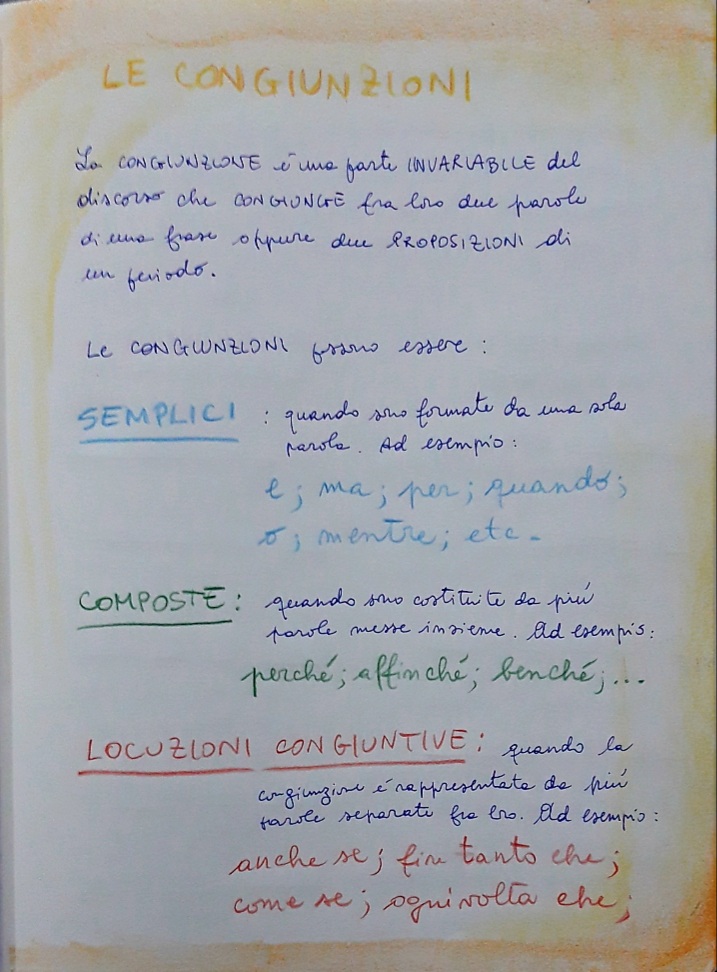 LE CONGIUNZIONI
La CONGIUNZIONE è una parte INVARIABILE del
discorso che CONGIUNGE fra loro due parole
di una frase oppure due PROPOSIZIONI di
un periodo.
Le CONGIUNZIONI possono essere :
SEMPLICI : quando sono formate da una sola
parola. Ad esempio :
e ; ma ; per ; quando ;
o ; mentre ; etc.
COMPOSTE : quando sono costituite da più
parole messe insieme. Ad esempio :
perché ; affinché ; benché ; ...
LOCUZIONI CONGIUNTIVE : quando la
congiunzione è rappresentata da più
parole separate fra loro. Ad esempio :
anche se ; fin tanto che ;
come se ; ogni volta che ;